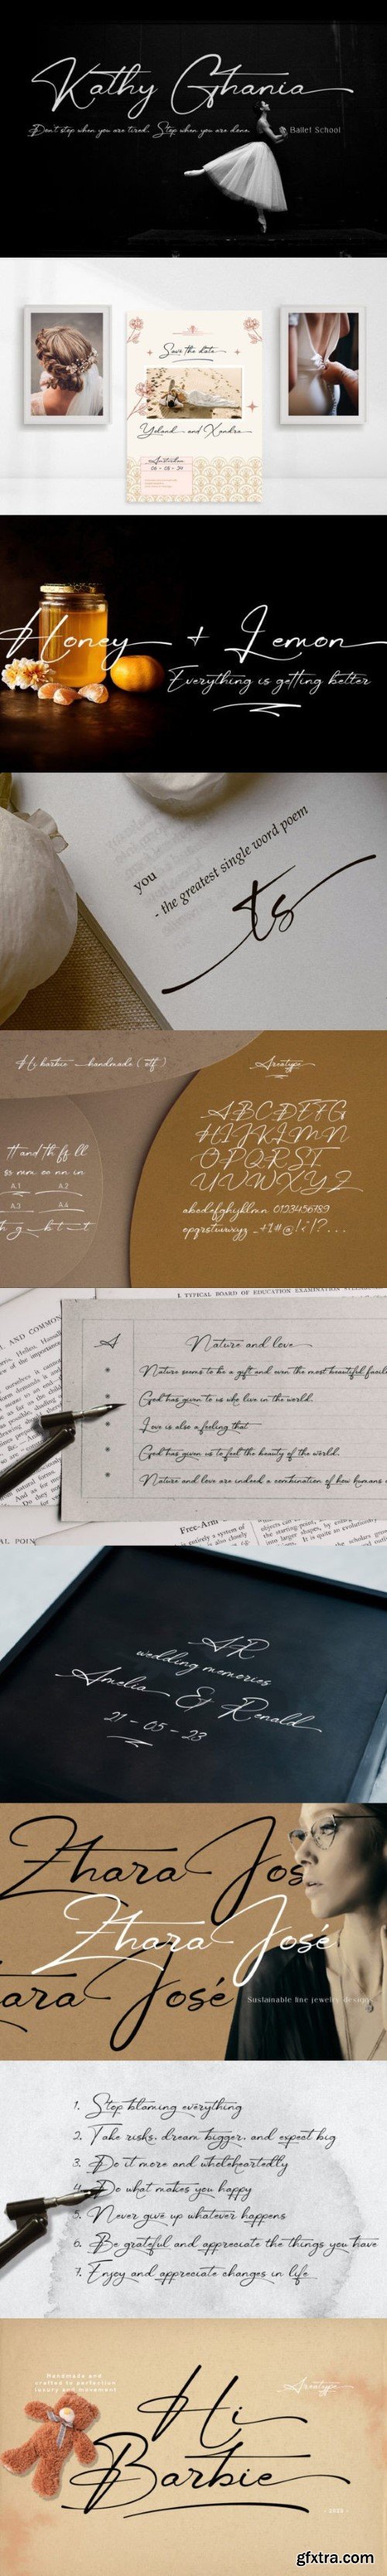 Kathy Ghania
Don't stop when you are tired. Stop when you are done.
Ballet School
Save the date
Yoland and Xandra
Amsterdam
06 - 08 - 24
Honey + Lemon
Everything is getting better
you
- the greatest single word poem
ts
Hi barbie handmade ( otf )
Areatype
tt and th ff ll
ss mm oo nn in
A.1 A.2
A.3 A.4
ABCDEFG
HIJKLMN
OPQRST
UVWXYZ
abcdefghijklmn 0123456789
opqrstuvwxyz
I. TYPICAL BOARD OF EDUCATION EXAMINATION
AND COMMON
A
Nature and love
Nature seems to be a gift and even the most beautiful
God has given to us who live in the world.
Love is also a feeling that
God has given us to feel the beauty of the world.
Nature and love are indeed a combination of how humans
Free-Arm
AR
wedding memories
Amelia & Renald
21 - 05 - 23
Zhara Jos
Zhara José
ara José
Sustainable line jewelry designs
1. Stop blaming everything
2. Take risks, dream bigger, and expect big
3. Do it more and wholeheartedly
4. Do what makes you happy
5. Never give up whatever happens
6. Be grateful and appreciate the things you have
7. Enjoy and appreciate changes in life
Handmade and
crafted to perfection
luxury and movement
Areatype
Hi
Barbie
- 2023 -
gfxtra.com